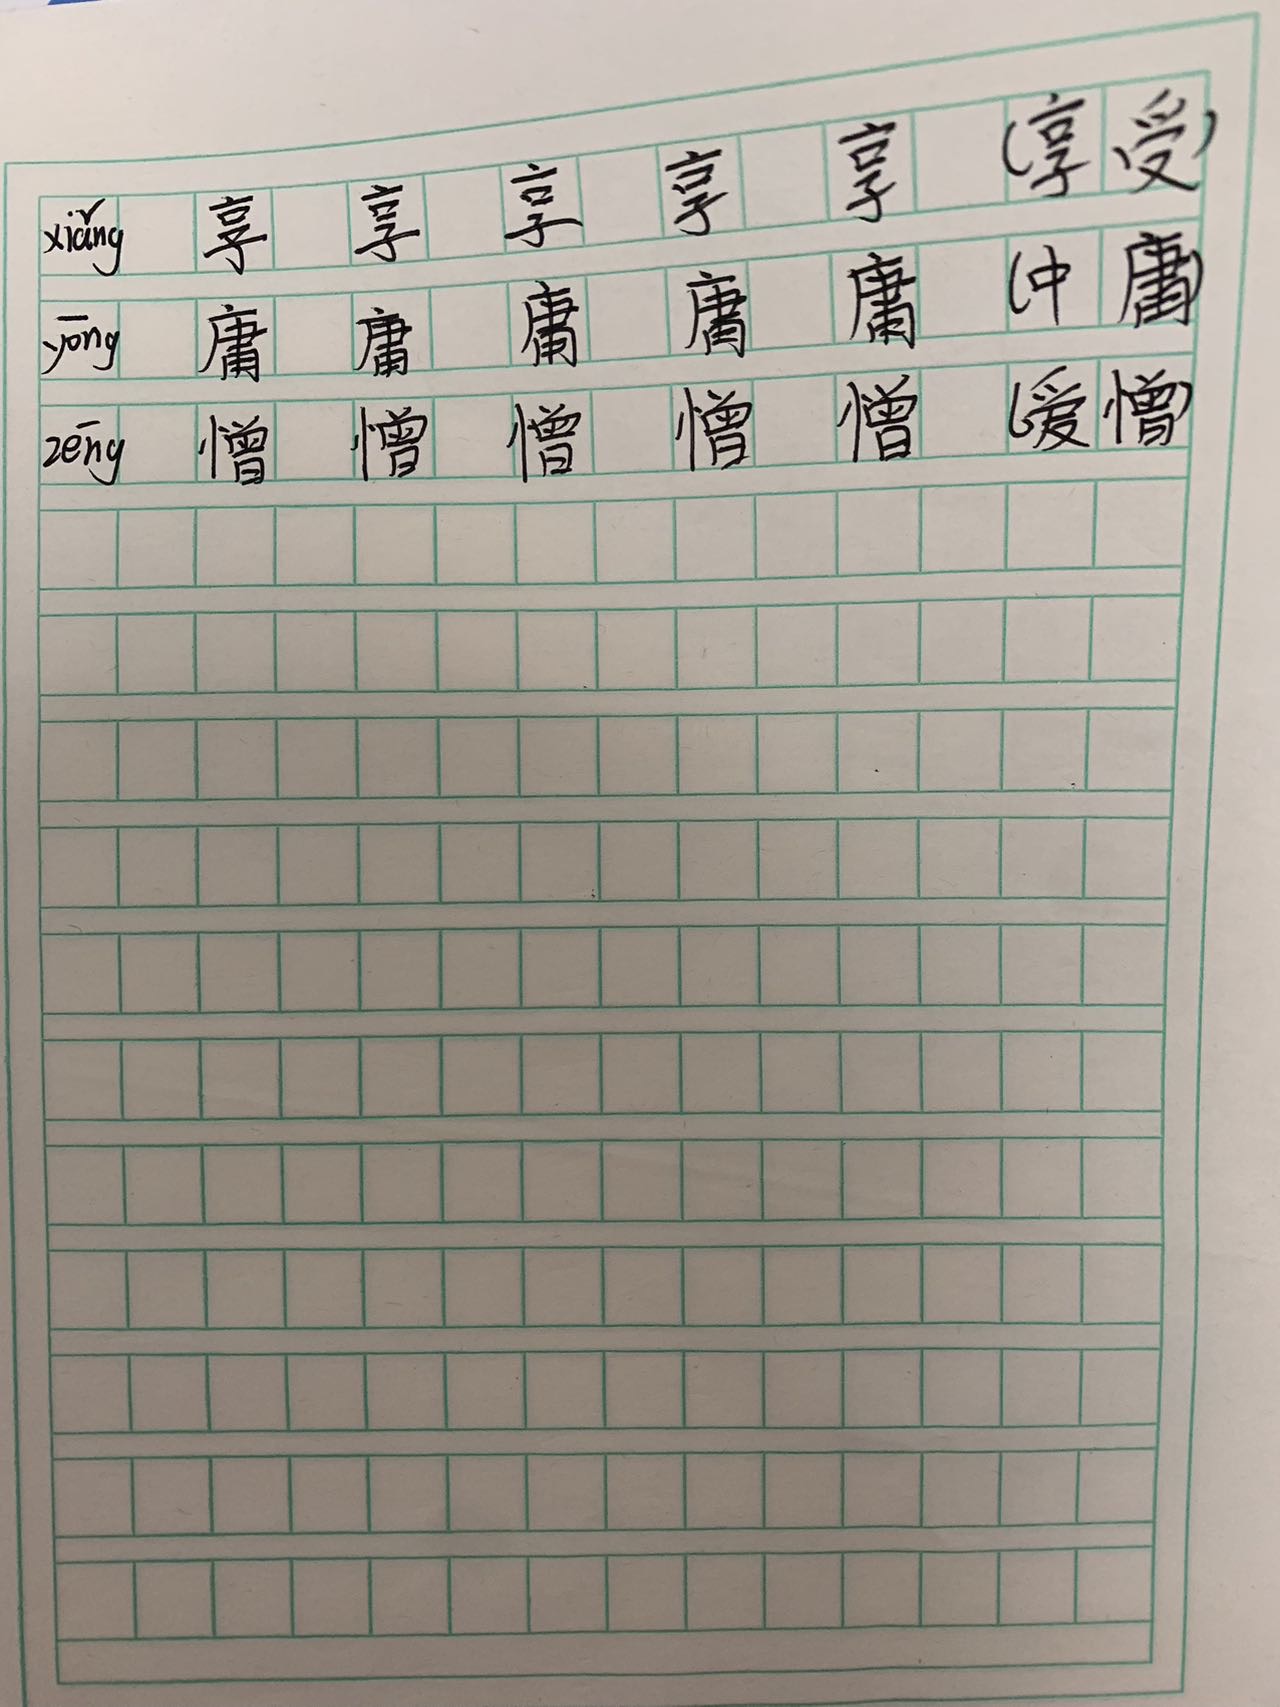 xiǎng 享 享 享 享 享 (享受)
yōng 庸 庸 庸 庸 庸 (中庸)
zēng 憎 憎 憎 憎 憎 (爱憎)